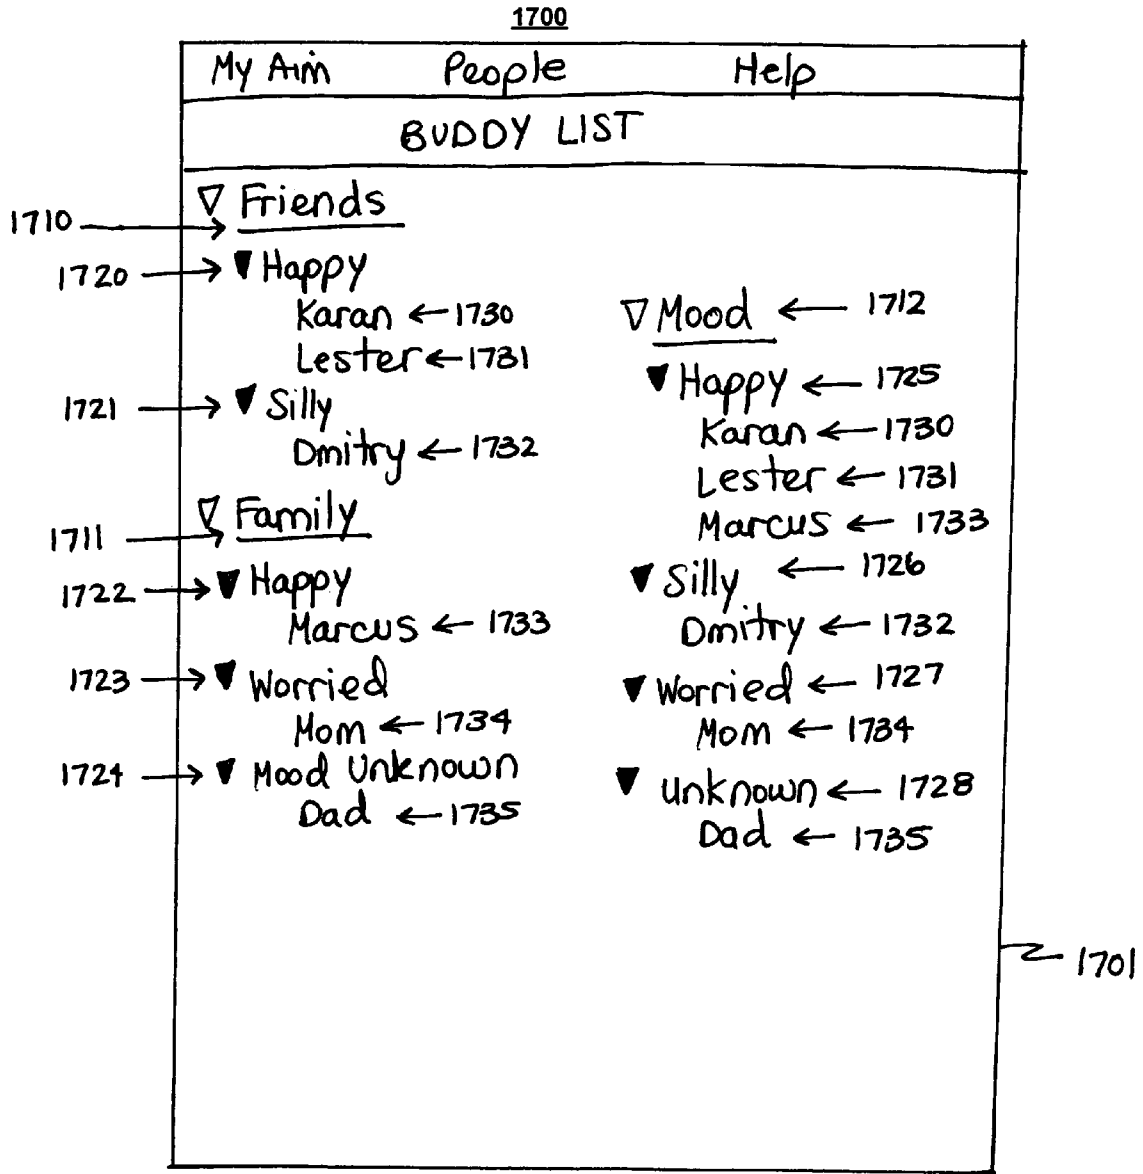 1700
My Aim People Help
BUDDY LIST
Friends
1710
1720 Happy
Karan 1730
Lester 1731
1721 Silly
Dmitry 1732
Family
1711
1722 Happy
Marcus 1733
1723 Worried
Mom 1734
1724 Mood Unknown
Dad 1735
Mood 1712
Happy 1725
Karan 1730
Lester 1731
Marcus 1733
Silly 1726
Dmitry 1732
Worried 1727
Mom 1734
Unknown 1728
Dad 1735
1701